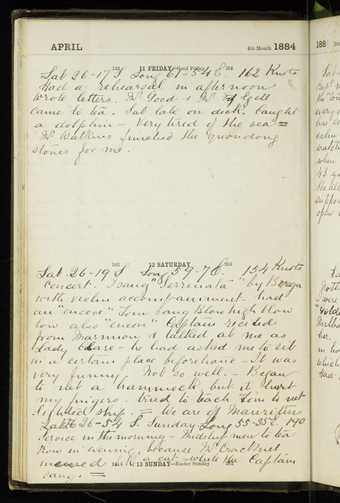 APRIL 4th Month 1884
11 FRIDAY—Good Friday
Lat 26-17 S Long 61-54 E. 162 Knots
Had a rehearsal in afternoon
wrote letters. Mr Good & Mr
came to tea. Sat late on deck. Caught
a dolphin - Very tired of the sea =
Mr Watkins finished the quondong
stones for me.
12 SATURDAY
Lat 26-19 S Long 59-7 E. 154 Knots
Concert. I sang "Serenata" by Braga
with violin accompaniment had
an "encore" Tom sang Blow high blow
low also "encore" Captain recited
from Marmion & looked at me as
Lady Clare - he had asked me to sit
in a certain place beforehand - It was
very funny. Not so well. - Began
to net a hammock but it hurt
my fingers. tried to teach Tom to net
Sighted ship. = We are off Mauritius
Lat 26-54 S. Sunday Long 55-55 E. 170
Service in the morning - Midship men to tea
Row in evening, because Mr
a cat while the Captain
sang. =
13 SUNDAY—Easter Sunday
188